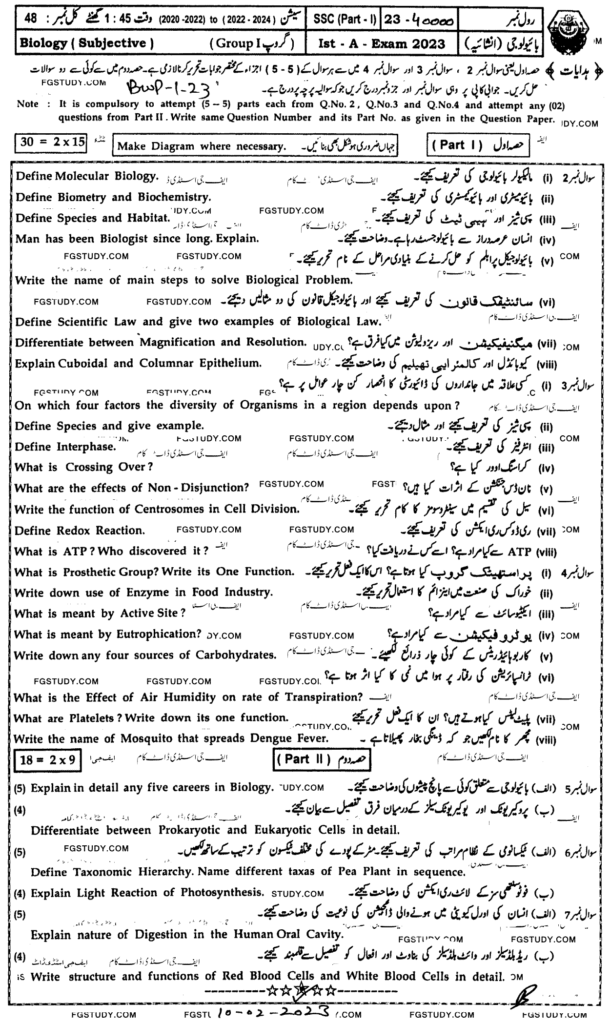 رول نمبر 23-40000 SSC (Part - I) سیشن (2020-2022) to (2022-2024) وقت 1:45 گھنٹے کل نمبر: 48
بائیولوجی (انشائیہ) Ist - A - Exam 2023 (Group I گروپ) Biology (Subjective)
FGSTUDY.COM
BWP-1-23
Note : It is compulsory to attempt (5 -- 5) parts each from Q.No.2 , Q.No.3 and Q.No.4 and attempt any (02)
questions from Part II . Write same Question Number and its Part No. as given in the Question Paper. IDY.COM
30 = 2 x 15 Make Diagram where necessary. جہاں ضروری ہو شکل بھی بنائیں۔ (Part I) حصہ اول
Define Molecular Biology. سوال نمبر 2 (i) مالیکیولر بائیولوجی کی تعریف کیجئے۔
Define Biometry and Biochemistry. (ii) بائیومیٹری اور بائیوکیمسٹری کی تعریف کیجئے۔
Define Species and Habitat. (iii) سپی شیز اور ہیبی ٹیٹ کی تعریف کیجئے۔
IDY.COM FGSTUDY.COM
Man has been Biologist since long. Explain. (iv) انسان عرصہ دراز سے بائیولوجسٹ رہا ہے۔ وضاحت کیجئے۔
FGSTUDY.COM FGSTUDY.COM (v) بائیولوجیکل پرابلم کو حل کرنے کے بنیادی مراحل کے نام تحریر کیجئے۔ COM
Write the name of main steps to solve Biological Problem.
FGSTUDY.COM FGSTUDY.COM (vi) سائنٹیفک قانون کی تعریف کیجئے اور بائیولوجیکل قانون کی دو مثالیں دیجئے۔
Define Scientific Law and give two examples of Biological Law.
Differentiate between Magnification and Resolution. (vii) میگنیفیکیشن اور ریزولیوشن میں کیا فرق ہے؟ COM
Explain Cuboidal and Columnar Epithelium. (viii) کیوبائڈل اور کالمنر ایپی تھیلیم کی وضاحت کیجئے۔
FGSTUDY.COM FGSTUDY.COM سوال نمبر 3 (i) کسی علاقہ میں جانداروں کی ڈائیورسٹی کا انحصار کن چار عوامل پر ہے؟
On which four factors the diversity of Organisms in a region depends upon ?
Define Species and give example. (ii) سپی شیز کی تعریف کیجئے اور مثال دیجئے۔
FGSTUDY.COM FGSTUDY.COM COM
Define Interphase. (iii) انٹرفیز کی تعریف کیجئے۔
What is Crossing Over ? (iv) کراسنگ اوور کیا ہے؟
What are the effects of Non - Disjunction? (v) نان ڈس جنکشن کے اثرات کیا ہیں؟
Write the function of Centrosomes in Cell Division. (vi) سیل کی تقسیم میں سینٹروسومز کا کام تحریر کیجئے۔
Define Redox Reaction. FGSTUDY.COM FGSTUDY.COM (vii) ریڈوکس ری ایکشن کی تعریف کیجئے۔ COM
What is ATP ? Who discovered it ? (viii) ATP سے کیا مراد ہے؟ اسے کس نے دریافت کیا؟
What is Prosthetic Group? Write its One Function. سوال نمبر 4 (i) پراستھیٹک گروپ کیا ہوتا ہے؟ اس کا ایک فعل تحریر کیجئے۔
Write down use of Enzyme in Food Industry. (ii) خوراک کی صنعت میں اینزائم کا استعمال تحریر کیجئے۔
What is meant by Active Site ? (iii) ایکٹیو سائٹ سے کیا مراد ہے؟
What is meant by Eutrophication? DY.COM FGSTUDY.COM (iv) یوٹروفیکیشن سے کیا مراد ہے؟ COM
Write down any four sources of Carbohydrates. (v) کاربوہائیڈریٹس کے کوئی چار ذرائع لکھیئے۔
FGSTUDY.COM FGSTUDY.COM FGSTUDY.COI (vi) ٹرانسپائریشن کی رفتار پر ہوا میں نمی کا کیا اثر ہوتا ہے؟
What is the Effect of Air Humidity on rate of Transpiration?
What are Platelets ? Write down its one function. (vii) پلیٹلیٹس کیا ہوتے ہیں؟ ان کا ایک فعل تحریر کیجئے۔ COM
Write the name of Mosquito that spreads Dengue Fever. (viii) مچھر کا نام لکھیں جو کہ ڈینگی بخار پھیلاتا ہے۔
18 = 2 x 9 (Part II) حصہ دوم
(5) Explain in detail any five careers in Biology. سوال نمبر 5 (الف) بائیولوجی سے متعلق کوئی سے پانچ پیشوں کی وضاحت کیجئے۔
(4) (ب) پروکیریوٹک اور یوکیریوٹک سیلز کے درمیان فرق تفصیل سے بیان کیجئے۔
Differentiate between Prokaryotic and Eukaryotic Cells in detail.
(5) FGSTUDY.COM سوال نمبر 6 (الف) ٹیکسانومی کے نظام مراتب کی تعریف کیجئے۔ مٹر کے پودے کی مختلف ٹیکسون کو ترتیب کے ساتھ لکھیں۔
Define Taxonomic Hierarchy. Name different taxas of Pea Plant in sequence.
(4) Explain Light Reaction of Photosynthesis. STUDY.COM (ب) فوٹوسنتھی سز کے لائٹ ری ایکشن کی وضاحت کیجئے۔
(5) سوال نمبر 7 (الف) انسان کی اورل کیویٹی میں ہونے والی ڈائجیشن کی نوعیت کی وضاحت کیجئے۔
Explain nature of Digestion in the Human Oral Cavity. FGSTUDY.COM FGSTUDY.COM
(4) (ب) ریڈ بلڈ سیلز اور وائٹ بلڈ سیلز کی بناوٹ اور افعال کو تفصیل سے قلمبند کیجئے۔
Write structure and functions of Red Blood Cells and White Blood Cells in detail.
FGSTUDY.COM 10-02-2023 FGSTUDY.COM FGSTUDY.COM